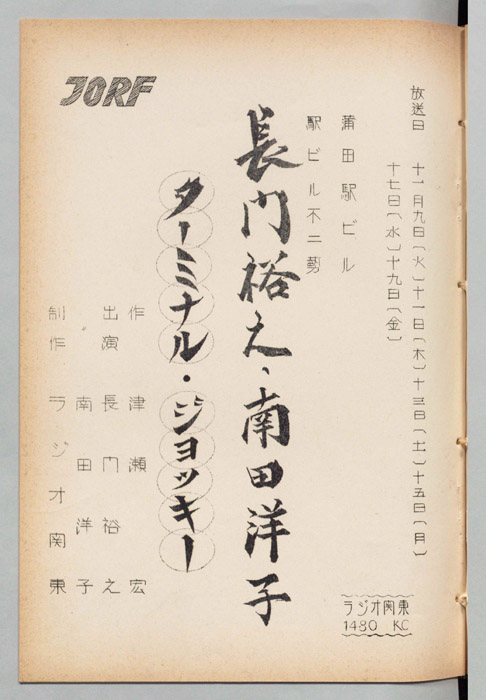 JORF
放送日 十一月九日(火)十一日(木)十三日(土)十五日(月)
十七日(水)十九日(金)
蒲田駅ビル
駅ビル不二勢
長門裕之、南田洋子
ターミナル・ジョッキー
作 津瀬宏
出演 長門裕之
〃 南田洋子
制作 ラジオ関東
ラジオ関東
1480 KC